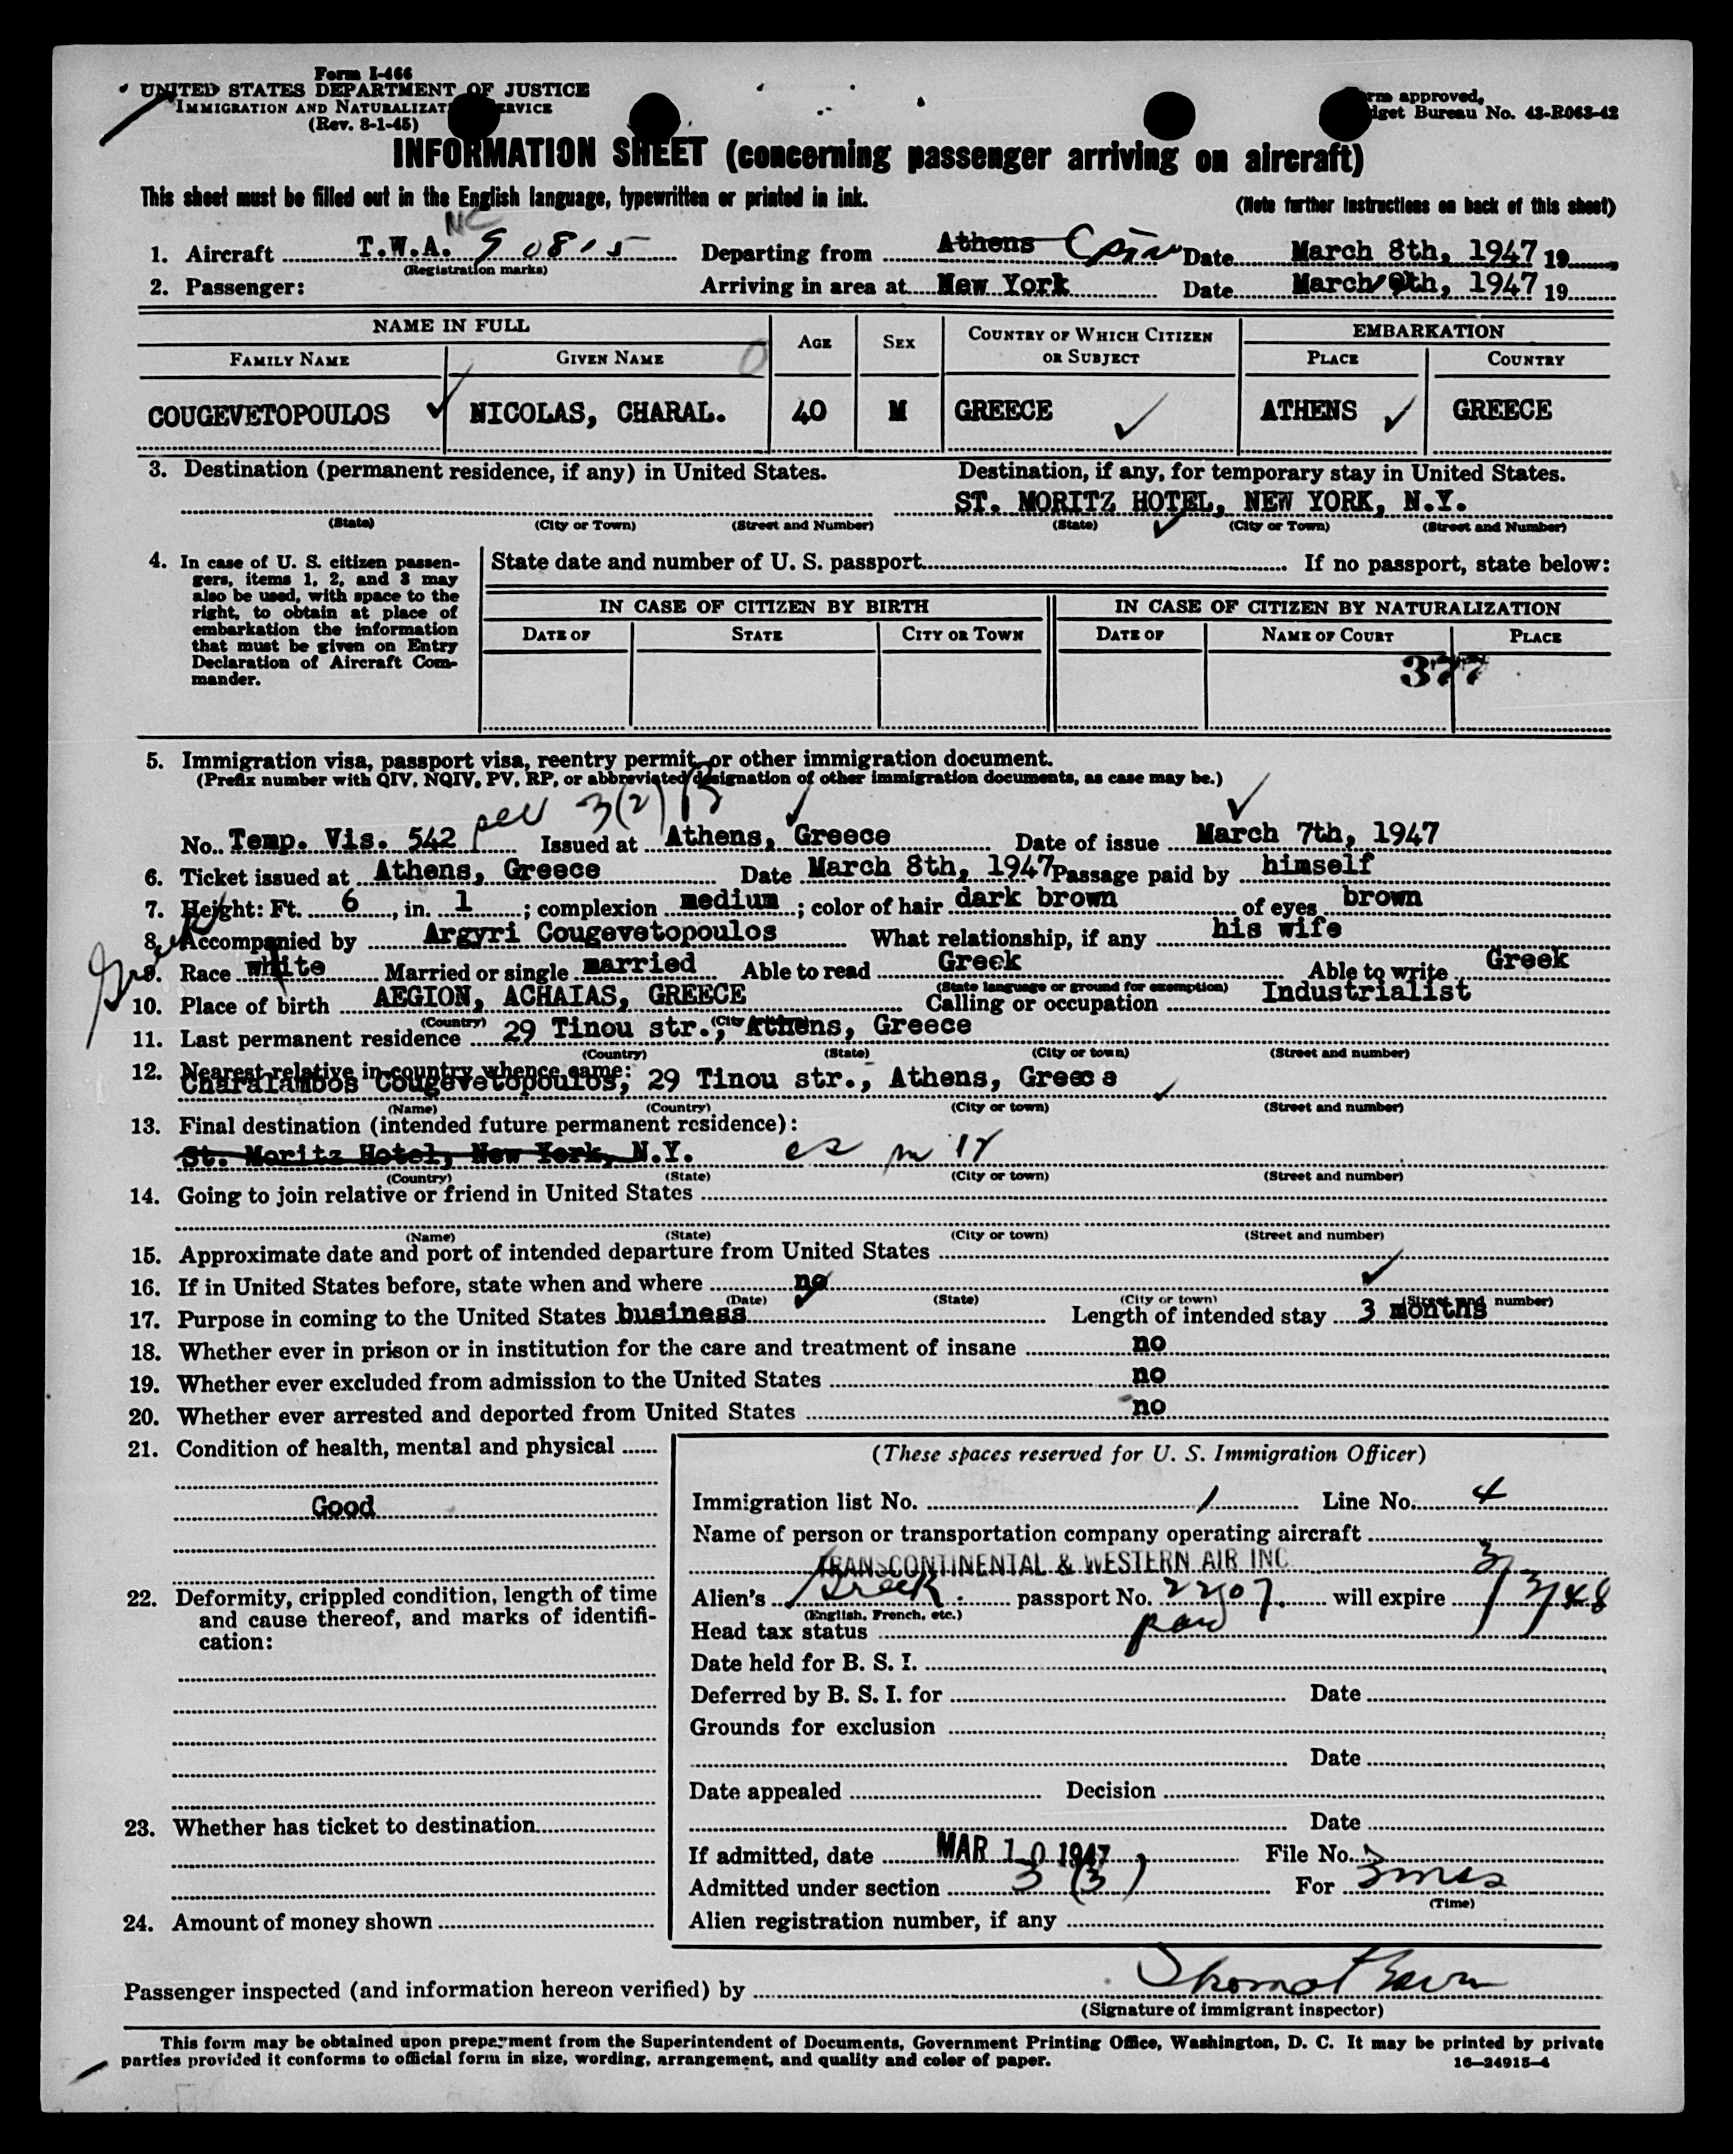 Form I-466
UNITED STATES DEPARTMENT OF JUSTICE
IMMIGRATION AND NATURALIZATION SERVICE
(Rev. 8-1-45)
Form approved,
Budget Bureau No. 43-R063-42
INFORMATION SHEET (concerning passenger arriving on aircraft)
This sheet must be filled out in the English language, typewritten or printed in ink.
(Note further instructions on back of this sheet)
NC
1. Aircraft T.W.A. 90815 Departing from Athens Date March 8th, 1947 19
(Registration marks)
2. Passenger: Arriving in area at New York Date March 9th, 1947 19
NAME IN FULL AGE SEX COUNTRY OF WHICH CITIZEN OR SUBJECT EMBARKATION
FAMILY NAME GIVEN NAME PLACE COUNTRY
COUGEVETOPOULOS NICOLAS, CHARAL. 40 M GREECE ATHENS GREECE
3. Destination (permanent residence, if any) in United States. Destination, if any, for temporary stay in United States.
ST. MORITZ HOTEL, NEW YORK, N.Y.
(State) (City or Town) (Street and Number) (State) (City or Town) (Street and Number)
4. In case of U. S. citizen passengers, items 1, 2, and 3 may also be used, with space to the right, to obtain at place of embarkation the information that must be given on Entry Declaration of Aircraft Commander.
State date and number of U. S. passport If no passport, state below:
IN CASE OF CITIZEN BY BIRTH IN CASE OF CITIZEN BY NATURALIZATION
DATE OF STATE CITY OR TOWN DATE OF NAME OF COURT PLACE
377
5. Immigration visa, passport visa, reentry permit, or other immigration document.
(Prefix number with QIV, NQIV, PV, RP, or abbreviated designation of other immigration documents, as case may be.)
3(2)
No. Temp. Vis. 542 Issued at Athens, Greece Date of issue March 7th, 1947
6. Ticket issued at Athens, Greece Date March 8th, 1947 Passage paid by himself
7. Height: Ft. 6, in. 1; complexion medium; color of hair dark brown of eyes brown
8. Accompanied by Argyri Cougevetopoulos What relationship, if any his wife
Greek
9. Race white Married or single married Able to read Greek Able to write Greek
(State language or ground for exemption)
10. Place of birth AEGION, ACHAIAS, GREECE Calling or occupation Industrialist
(Country) (City
11. Last permanent residence 29 Tinou str., Athens, Greece
(Country) (State) (City or town) (Street and number)
12. Nearest relative in country whence came:
Charalambos Cougevetopoulos, 29 Tinou str., Athens, Greece
(Name) (Country) (City or town) (Street and number)
13. Final destination (intended future permanent residence):
St. Moritz Hotel, New York, N.Y.
(Country) (State) (City or town) (Street and number)
14. Going to join relative or friend in United States
(Name) (State) (City or town) (Street and number)
15. Approximate date and port of intended departure from United States
16. If in United States before, state when and where no
(Date) (State) (City or town) (Street and number)
17. Purpose in coming to the United States business Length of intended stay 3 months
18. Whether ever in prison or in institution for the care and treatment of insane no
19. Whether ever excluded from admission to the United States no
20. Whether ever arrested and deported from United States no
21. Condition of health, mental and physical
Good
22. Deformity, crippled condition, length of time and cause thereof, and marks of identification:
23. Whether has ticket to destination
24. Amount of money shown
(These spaces reserved for U. S. Immigration Officer)
Immigration list No. 1 Line No. 4
Name of person or transportation company operating aircraft
TRANSCONTINENTAL & WESTERN AIR INC
Alien's Greek passport No. 2207 will expire 3/3/48
(English, French, etc.)
Head tax status paid
Date held for B. S. I.
Deferred by B. S. I. for Date
Grounds for exclusion
Date
Date appealed Decision
Date
If admitted, date MAR 10 1947 File No.
Admitted under section 3 (3) For 3 mos
(Time)
Alien registration number, if any
Passenger inspected (and information hereon verified) by
(Signature of immigrant inspector)
This form may be obtained upon prepayment from the Superintendent of Documents, Government Printing Office, Washington, D. C. It may be printed by private
parties provided it conforms to official form in size, wording, arrangement, and quality and color of paper.
16—24915-4